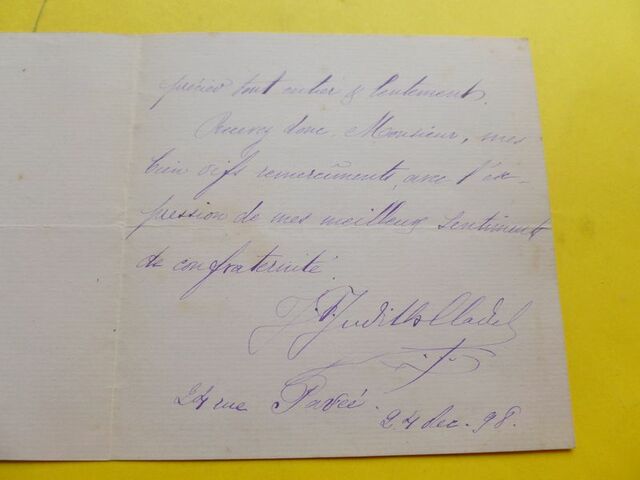 précier tout entier & lentement.
Recevez donc, Monsieur, mes
bien vifs remercîments, avec l'ex-
pression de mes meilleurs sentiments
de confraternité.
Judith Cladel
24 rue Pavée.
24 dec. 98.